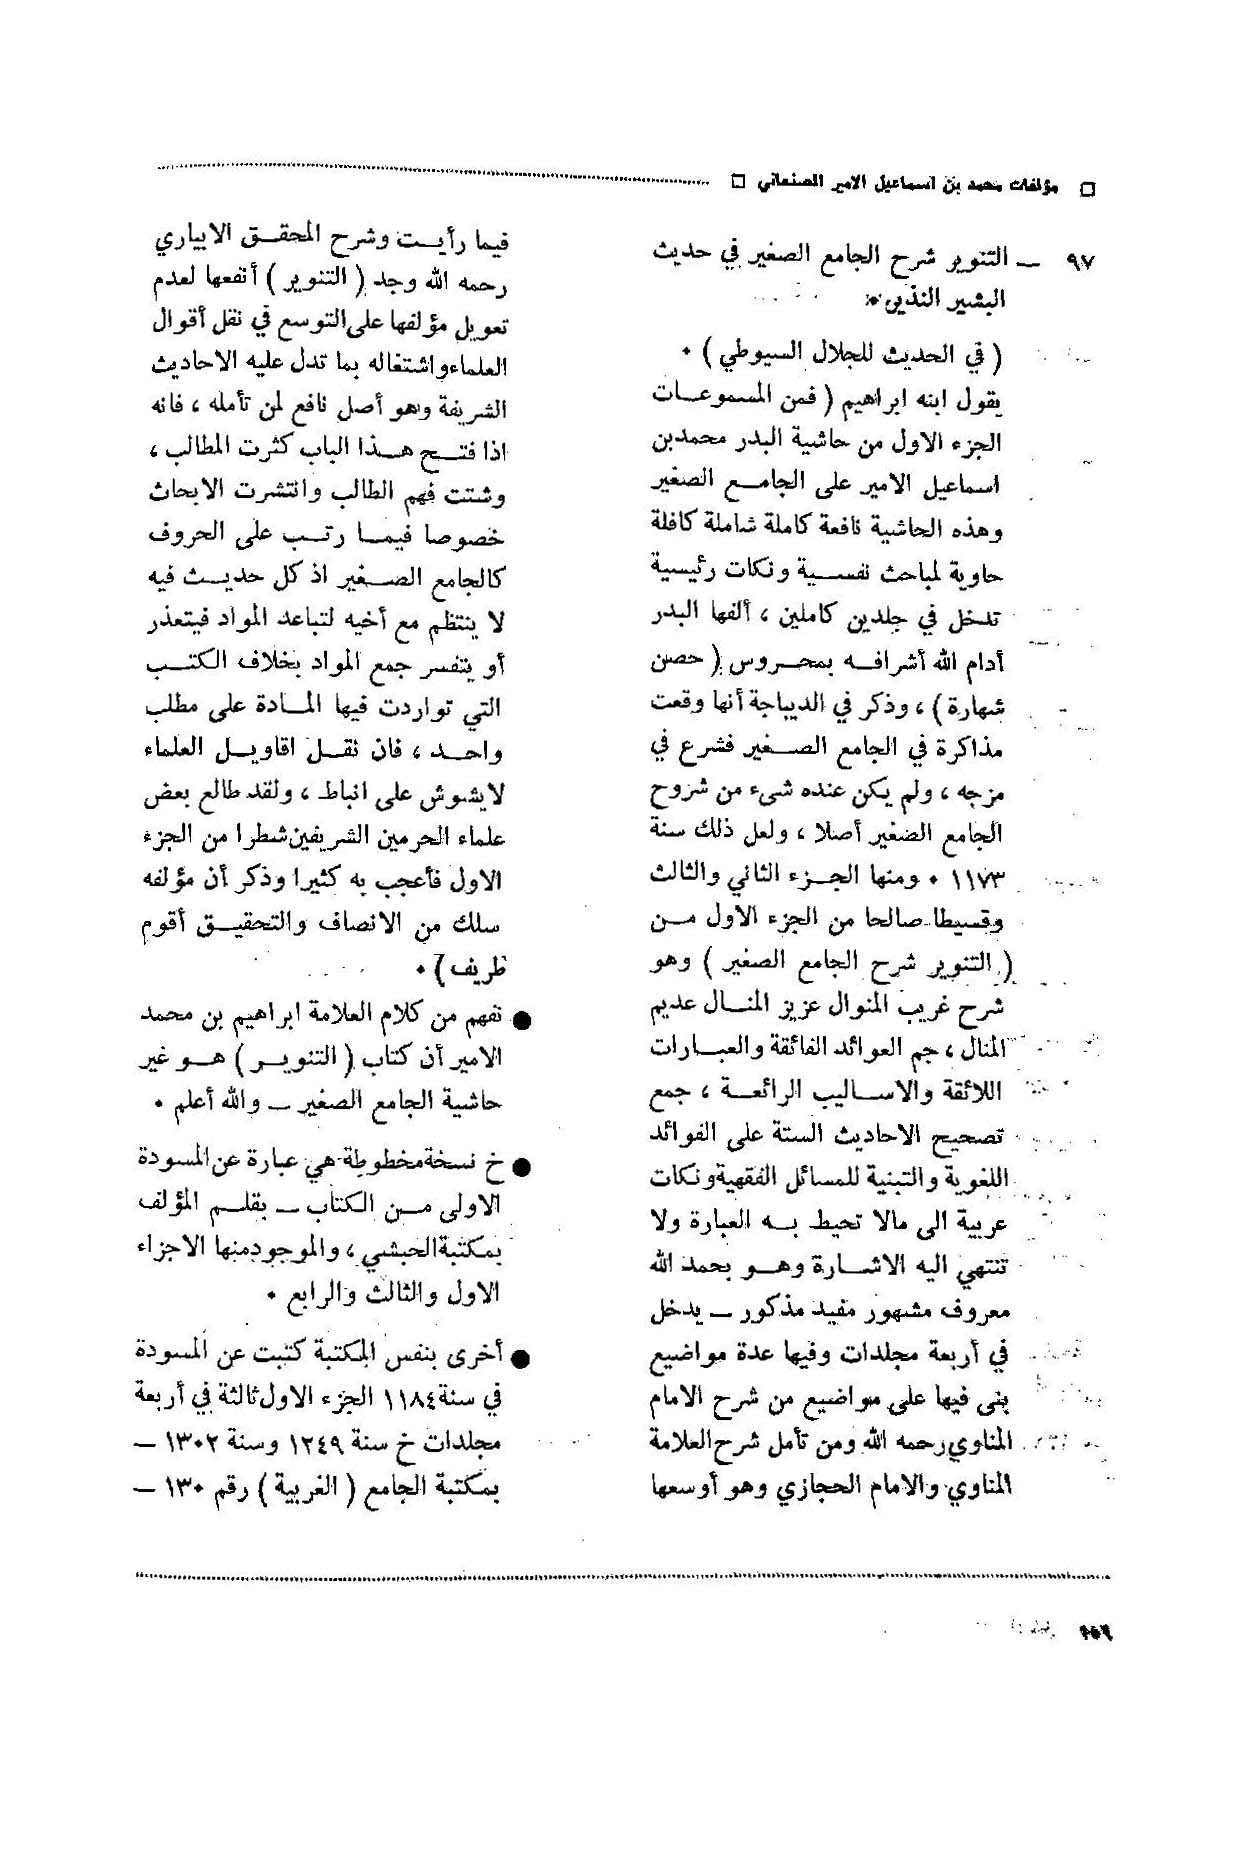 □ مؤلفات محمد بن اسماعيل الامير الصنعاني □
٩٧ ــ التنوير شرح الجامع الصغير في حديث
البشير النذير
( في الحديث للجلال السيوطي ) ٠
يقول ابنه ابراهيم ( فمن المسموعات
الجزء الاول من حاشية البدر محمدبن
اسماعيل الامير على الجامع الصغير
وهذه الحاشية نافعة كاملة شاملة كافلة
حاوية لمباحث نفسية ونكات رئيسية
تدخل في جلدين كاملين ، ألفها البدر
أدام الله أشرافه بمحروس ( حصن
شهارة ) ، وذكر في الديباجة أنها وقعت
مذاكرة في الجامع الصغير فشرع في
مزجه ، ولم يكن عنده شىء من شروح
الجامع الصغير أصلا ، ولعل ذلك سنة
١١٧٣ ٠ ومنها الجزء الثاني والثالث
وقسيطا صالحا من الجزء الاول من
( التنوير شرح الجامع الصغير ) وهو
شرح غريب المنوال عزيز المنال عديم
المنال ، جم العوائد الفائقة والعبارات
اللائقة والاساليب الرائعة ، جمع
تصحيح الاحاديث الستة على الفوائد
اللغوية والتبنية للمسائل الفقهية ونكات
عربية الى مالا تحيط به العبارة ولا
تنتهي اليه الاشارة وهو بحمد الله
معروف مشهور مفيد مذكور ــ يدخل
في أربعة مجلدات وفيها عدة مواضيع
بنى فيها على مواضيع من شرح الامام
المناوي رحمه الله ومن تأمل شرح العلامة
المناوي والامام الحجازي وهو أوسعها
فيما رأيت وشرح المحقق الابياري
رحمه الله وجد ( التنوير ) أنفعها لعدم
تعويل مؤلفها على التوسع في نقل أقوال
العلماء واشتغاله بما تدل عليه الاحاديث
الشريفة وهو أصل نافع لمن تأمله ، فانه
اذا فتح هذا الباب كثرت المطالب ،
وشتت فهم الطالب وانتشرت الابحاث
خصوصا فيما رتب على الحروف
كالجامع الصغير اذ كل حديث فيه
لا ينتظم مع أخيه لتباعد المواد فيتعذر
أو يتفسر جمع المواد بخلاف الكتب
التي تواردت فيها المادة على مطلب
واحد ، فان نقل اقاويل العلماء
لايشوش على انباط ، ولقد طالع بعض
علماء الحرمين الشريفين شطرا من الجزء
الاول فأعجب به كثيرا وذكر أن مؤلفه
سلك من الانصاف والتحقيق أقوم
ظريف ) ٠
● نفهم من كلام العلامة ابراهيم بن محمد
الامير أن كتاب ( التنوير ) هو غير
حاشية الجامع الصغير ــ والله أعلم ٠
● خ نسخة مخطوطة هي عبارة عن المسودة
الاولى من الكتاب ــ بقلم المؤلف
بمكتبة الحبشي ، والموجود منها الاجزاء
الاول والثالث والرابع ٠
● أخرى بنفس المكتبة كتبت عن المسودة
في سنة ١١٨٤ الجزء الاول ثالثة في أربعة
مجلدات خ سنة ١٢٤٩ وسنة ١٣٠٢ ــ
بمكتبة الجامع ( الغربية ) رقم ١٣٠ ــ